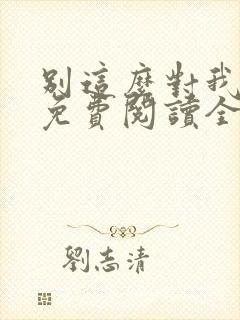 別這麼對我
免費閱讀全
劉志清